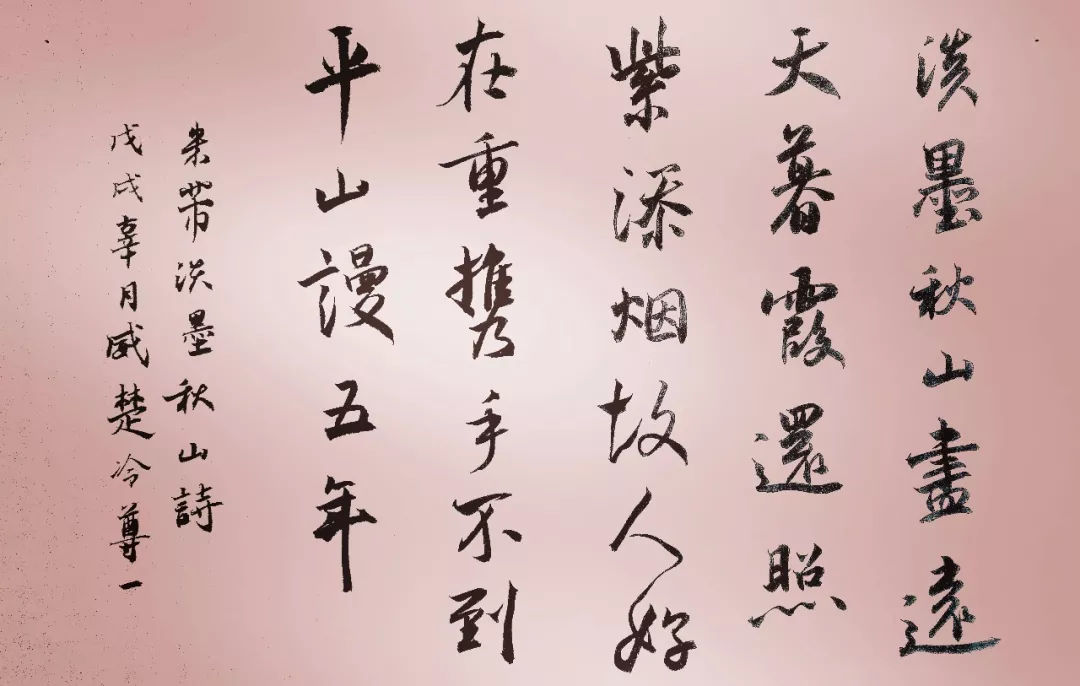 淡墨秋山盡遠
天暮霞還照
紫添烟故人好
在重携手不到
平山謾五年
米芾淡墨秋山詩
戊戌辜月威楚冷尊一